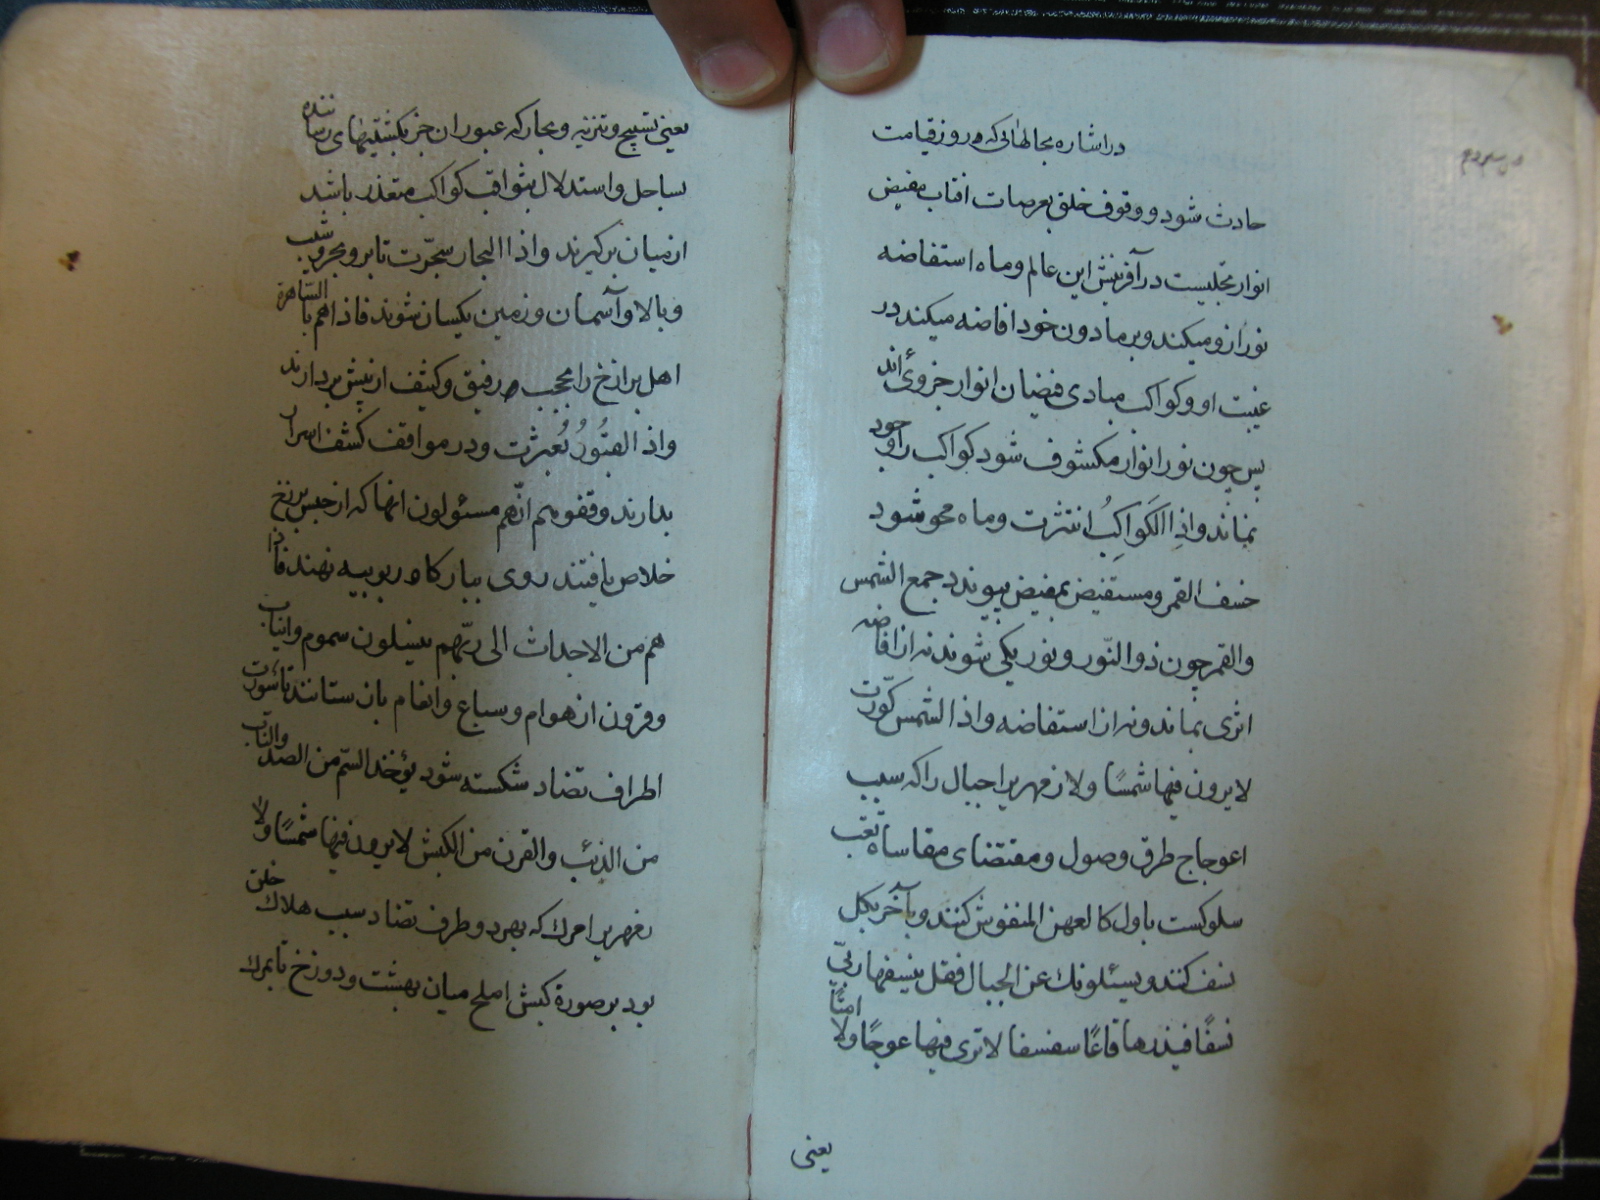 در اشاره بحالهائی که در روز قیامت
حادث شود و وقوف خلق بعرصات افتاب مفیض
انوار تجلیست در آفرینش این عالم و ماه استفاضه
نور ازو میکند و بر مادون خود افاضه میکند در
غیبت او و کواکب مبادی فیضان انوار جزوی‌ٔاند
پس چون نور انوار مکشوف شود کواکب را وجود
نماند و اذا الکَواکِبُ انتثرت و ماه محو شود
خسف القمر و مستفیض بمفیض پیوندد جمع الشمس
والقمر چون ذو النّور و نور یکی شوند نه از افاضه
اثری بماند و نه از استفاضه و اذا الشمس کوّرت
لا یرون فیها شمسًا ولا زمهریرا جبال را که سبب
اعوجاج طرق وصول و مقتضای مقاساة تعب
سلوکست باول کالعهن المنفوش کنند و بآخر بکل
نسف کنند و یسئلونک عن الجبال فقل ینسفها ربّی
نسفًا فیذرها قاعًا صفصفا لا تری فیها عوجًا ولا امتًا
یعنی
یعنی تسبیح و تنزیه و بحار که عبور ان جز بکشتیهای رساننده
بساحل و استدلال بثواقب کواکب متعذر باشد
از میان برگیرند و اذا البحار سجّرت تا بر و بحر و شیب
و بالا و آسمان و زمین یکسان شوند فاذا هم بالساهرة
اهل برازخ را محجب رقیق و کثیف از پیش بردارند
واذا القبُورُ بُعثرت و در مواقف کشف اسرار
بدارند وقفوهم انّهم مسئولون انها که از حبس برزخ
خلاص یافتند روی ببارکاه ربوبیه نهند فاذا
هم من الاجداث الی ربّهم ینسلون سموم و انیاب
و قرون از هوام و سباع و انعام بازستانند تا سورت
اطراف تضاد شکسته شود یؤخذ السّم من الصلّ والناب
من الذئب والقرن من الکبش لا یرون فیها شمسًا ولا
زمهریرا مرک که بهر دو طرف تضاد سبب هلاک خلق
بود بر صورة کبش املح میان بهشت و دوزخ تا بمرک